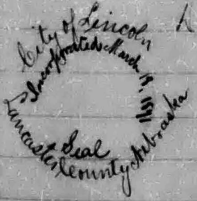 City of Lincoln
Incorporated March 18, 1871
Seal
Lancaster County Nebraska